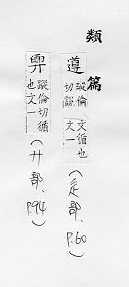 類篇
遵 蹤倫切說文循也文一(辵部,P.60)
蹤倫切循也文一(廾部,P.94)